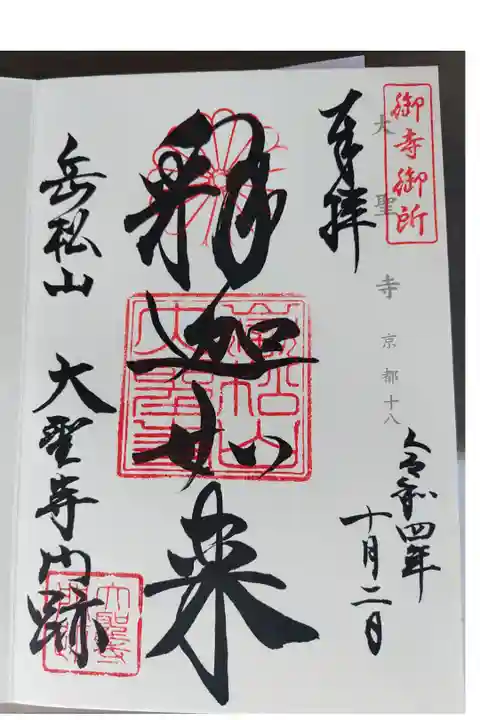 御寺御所
大聖寺 京都十八
奉拝
令和四年
十月二日
釋迦如来
岳松山 大聖寺門跡